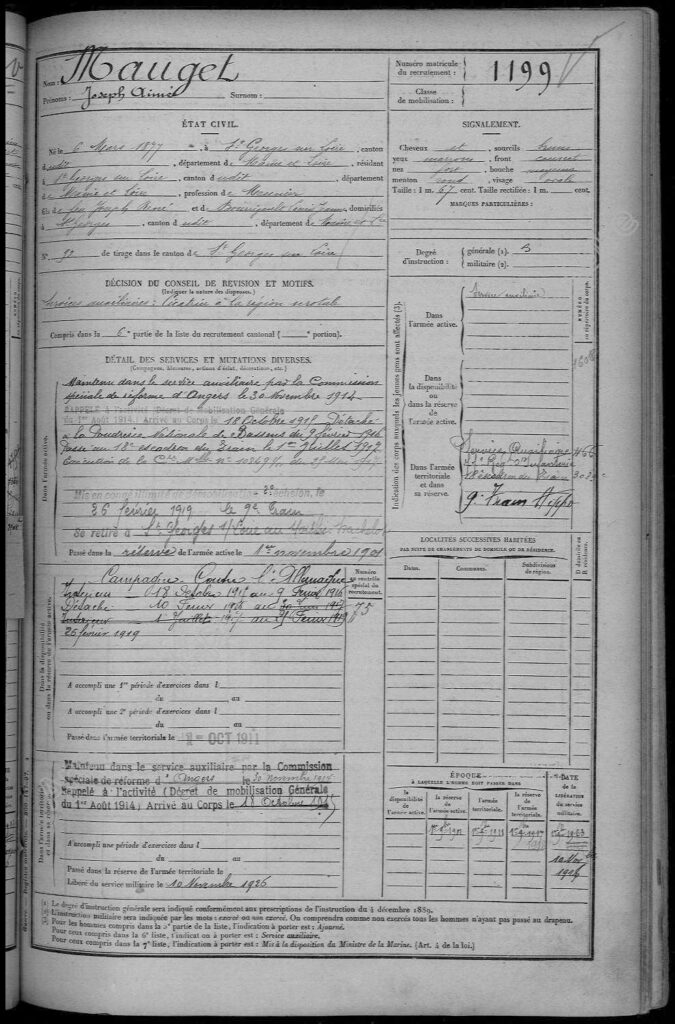 Nom : Mauget
Prénoms : Joseph Aimé Surnom :
Numéro matricule du recrutement : 1199
Classe de mobilisation :
ÉTAT CIVIL.
Né le 6 Mars 1877 , à St Georges sur Loire, canton
dudit, département de Maine et Loire, résidant
St Georges sur Loire, canton dudit, département
de Maine et Loire, profession de
fils de feu Joseph René et de domiciliés
à St Georges, canton dudit, département de Maine et Loire
N° 92 de tirage dans le canton de St Georges sur Loire
SIGNALEMENT.
Cheveux et sourcils bruns
yeux marrons, front couvert
nez fort, bouche moyenne
menton rond, visage ovale
Taille : 1 m. 67 cent. Taille rectifiée : 1 m. cent.
MARQUES PARTICULIÈRES :
Degré d'instruction : générale (1). 3
militaire (2).
DÉCISION DU CONSEIL DE REVISION ET MOTIFS.
(Indiquer la nature des dispenses.)
Services auxiliaires : Cicatrice à la région
Compris dans la 6e partie de la liste du recrutement cantonal ( e portion).
DÉTAIL DES SERVICES ET MUTATIONS DIVERSES.
(Campagnes, blessures, actions d'éclat, décorations, etc.)
Dans l'armée active.
Maintenu dans le service auxiliaire par la Commission
spéciale de réforme d'Angers le 30 Novembre 1914.
RAPPELÉ à l'activité (Décret de Mobilisation Générale
du 1er Août 1914.) Arrivé au Corps le 18 Octobre 1915 Détaché
à la Poudrerie Nationale de Bassens du 9 février 1916
Passé au 18e escadron du Train le 1er Juillet 1917
Mis en congé illimité de démobilisation échelon, le
26 février 1919 le 9e Train
Se retire à St Georges s/ Loire
Passé dans la réserve de l'armée active le 1er novembre 1901
Dans la disponibilité ou dans la réserve de l'armée active.
Campagne Contre l'Allemagne
Intérieur du 18 Octobre 1915 au 9 Févr 1916
Détaché 10 Févr 1916 au 30 Juin 1917
Intérieur 1er Juillet 1917 au
26 février 1919
Numéro au contrôle spécial du recrutement.
75
A accompli une 1re période d'exercices dans l
du au
A accompli une 2e période d'exercices dans l
du au
Passé dans l'armée territoriale le 1er OCT 1911
Dans l'armée territoriale et dans sa réserve.
Maintenu dans le service auxiliaire par la Commission
spéciale de réforme d'Angers le 30 novembre 1914
Rappelé à l'activité (Décret de mobilisation Générale
du 1er Août 1914) Arrivé au Corps le 18 Octobre 1915
A accompli une période d'exercices dans l
du au
Passé dans la réserve de l'armée territoriale le
Libéré du service militaire le 10 Novembre 1926
Indication des corps auxquels les jeunes gens sont affectés (3).
Dans l'armée active.
Service auxiliaire
Dans la disponibilité ou dans la réserve de l'armée active.
Dans l'armée territoriale et dans sa réserve.
18 escadron du Train
9e Train Hippo
NUMÉRO au répertoire du corps.
LOCALITÉS SUCCESSIVES HABITÉES
PAR SUITE DE CHANGEMENTS DE DOMICILE OU DE RÉSIDENCE.
Dates. Communes. Subdivisions de région. D domicile ou R. résidence.
ÉPOQUE
À LAQUELLE L'HOMME DOIT PASSER DANS
la disponibilité de l'armée active. la réserve de l'armée active. l'armée territoriale. la réserve de l'armée territoriale.
DATE DE LA LIBÉRATION DU SERVICE MILITAIRE.
10 Nov 1926
(1) Le degré d'instruction générale sera indiqué conformément aux prescriptions de l'instruction du 4 décembre 1889.
(2) L'instruction militaire sera indiquée par les mots : exercé ou non exercé. On comprendra comme non exercés tous les hommes n'ayant pas passé au drapeau.
(3) Pour les hommes compris dans la 5e partie de la liste, l'indication à porter est : Ajourné.
Pour ceux compris dans la 6e liste, l'indication à porter est : Service auxiliaire.
Pour ceux compris dans la 7e liste, l'indication à porter est : Mis à la disposition du Ministre de la Marine. (Art. 4 de la loi.)